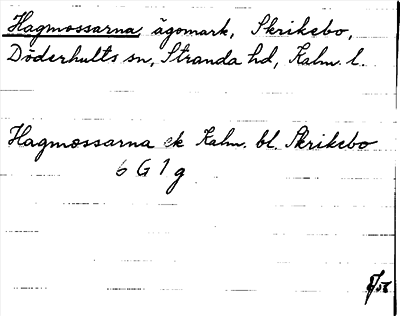 Hagmossarna, ägomark, Skrikebo,
Döderhults sn, Stranda hd, Kalm. l.
Hagmossarna ek Kalm. bl. Skrikebo
6 G 1 g